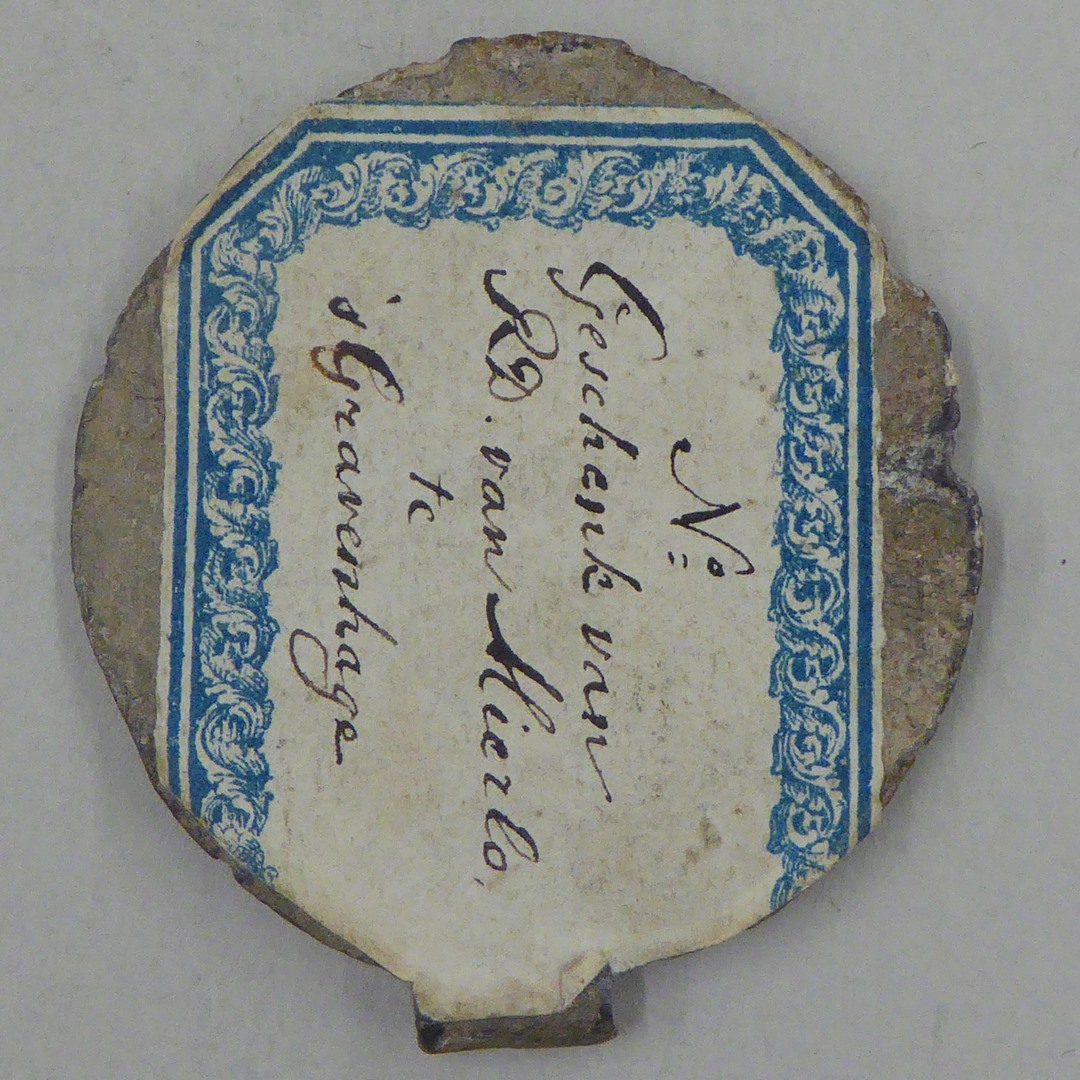 No
Geschenk van
R.D. van Mierlo,
te
s'Gravenhage